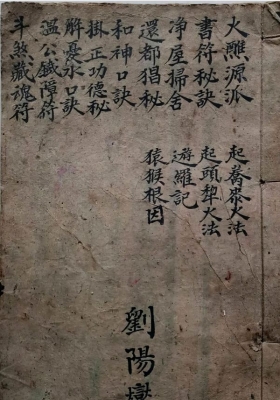 火醮源派
書符秘訣
净屋掃舍
還都猖秘
和神口訣
掛正功德秘
解憂水口訣
溫公鉞障符
斗煞藏魂符
起喬火法
起頭犂火法
遊羅記
猿猴根因
劉陽